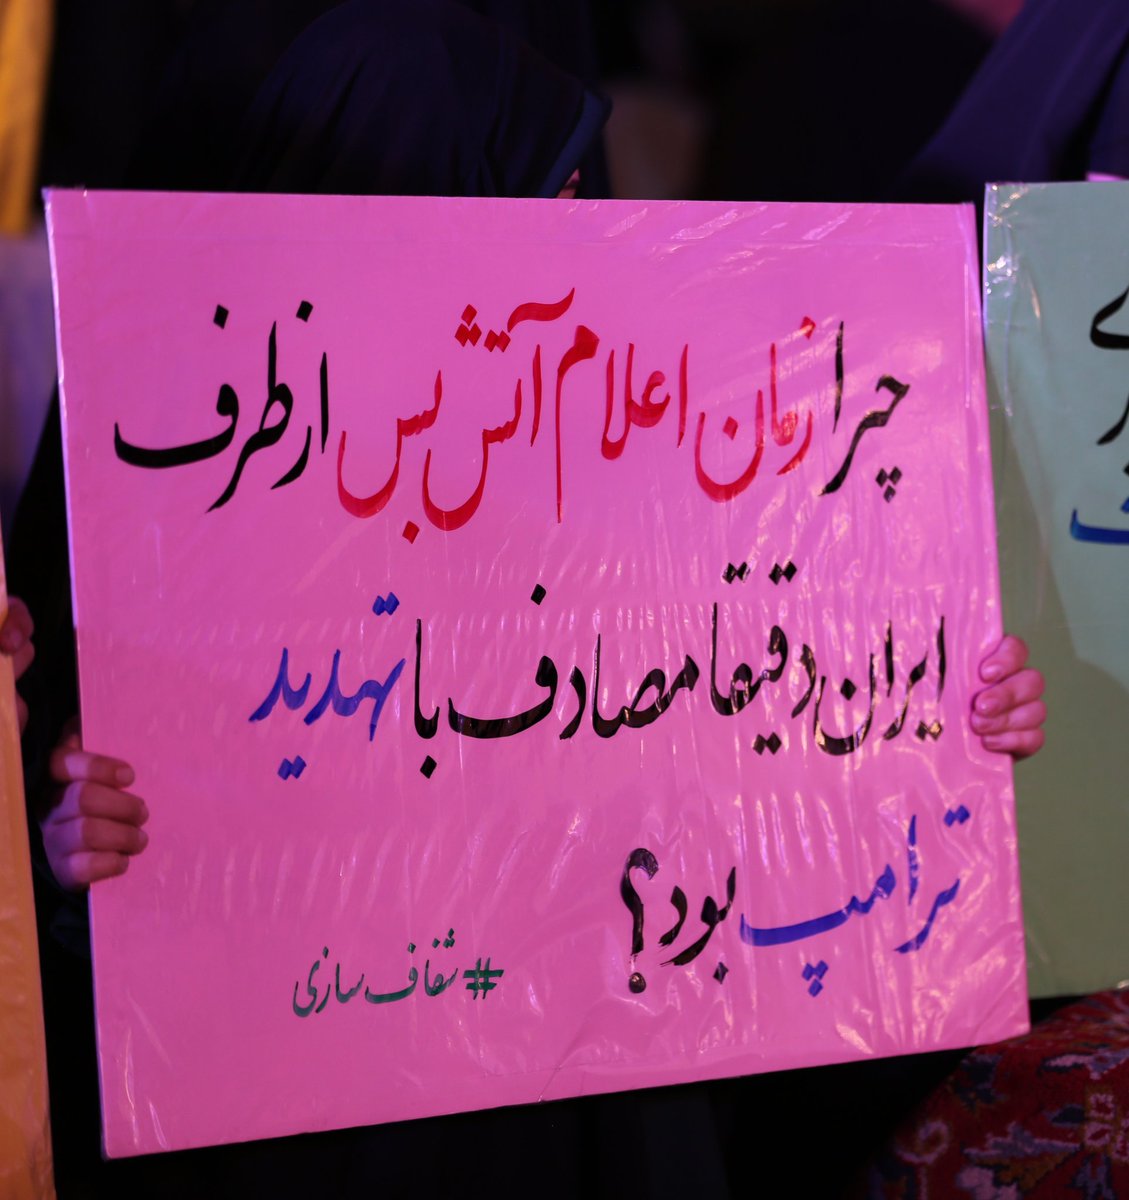 چرا زمان اعلام آتش بس از طرف
ایران دقیقا مصادف با تهدید
ترامپ بود؟
#شفاف سازی